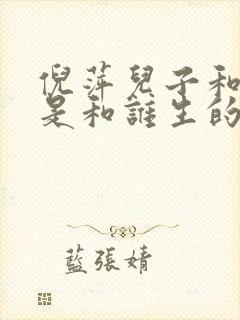 倪萍兒子和
是和誰生的
藍張婧